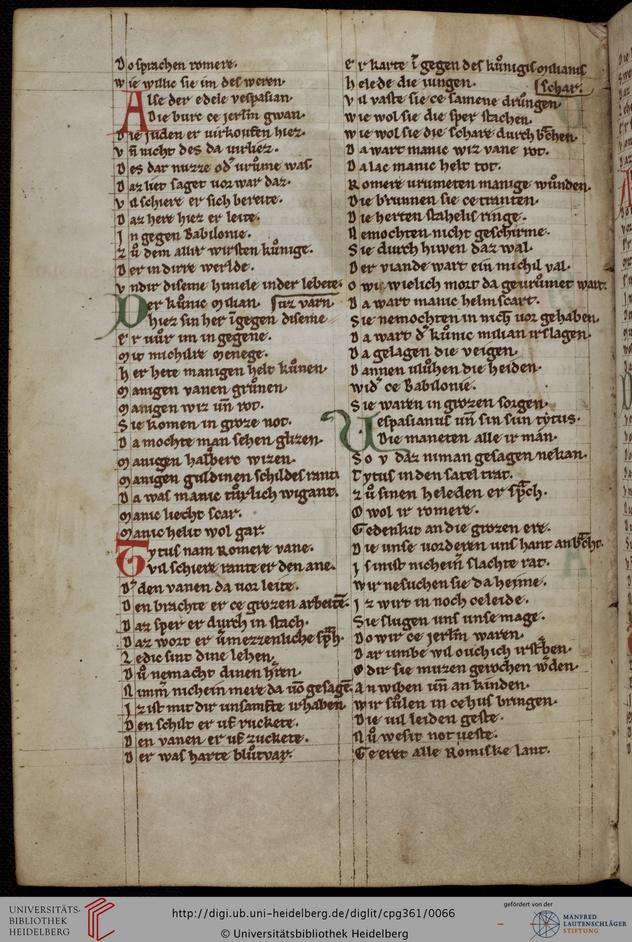 Do sprachen romere.
wie willic sie im des weren.
Alse der edele vespasian.
Die burc ce jerlm gwan.
Die juden er uirkouften hiez.
vn nicht des da uirliez.
Des dar nuzze od urume was.
Daz liet saget uor war daz.
vil schiere er sich bereite.
Daz here hiez er leite.
In gegen Babilonie.
zu dem allir wirsten kunige.
Der in dirre werlde.
vndir diseme himele inder lebete.
Der kunic Milian. fur varn
hiez sin her igegen diseme
er uur im in gegene.
Mit michilre menege.
her hete manigen helt kunen.
Manigen vanen grunen.
Manigen wiz un rot.
Sie komen in groze not.
Da mochte man sehen glizen.
Manigen halsperc wizen.
Manigen guldinen schildes rant.
Da was manic turlich wigant.
Manic liecht scar.
Manic helit wol gar.
Tytus nam Romere vane.
vil schiere rante er den ane.
D den vanen da uor leite.
Den brachte er ce grozen arbeite.
Daz sper er durch in stach.
Daz wort er uirmezzenliche sph.
Ledic sint dine lehen.
Du nemacht dinen hren.
Numm nichein mere da uo gesage.
Iz ist mit dir unsamfte irhaben.
Den schilt er uf ruckete.
Den vanen er uf zuckete.
Der was harte blutvar.
er karte i gegen des kunigis Milianis
helede die iungen. schar.
vil vaste sie ce samene drungen.
wie wol sie die sper stachen.
wie wol sie die schare durch bchen.
Da wart manic wiz vane rot.
Da lac manic helt tot.
Romere urumeten manige wunden.
Die brunnen sie ce tranten.
Die herten stahelis ringe.
Nemochten nicht geschirme.
Sie durch hiwen daz wal.
Der viande wart ein michil val.
owi wielich mort da geurumet wart.
Da wart manic helm scart.
Sie nemochten in nich uor gehaben.
Da wart d kunic milian irslagen.
Da gelagen die veigen.
Dannen uluhen die heiden.
wid ce Babilonie.
Sie waren in grozen sorgen.
Vespasianus un sin sun tytus.
Die maneten alle ir man.
So v daz niman gesagen nekan.
Tytus in den satel trat.
zu sinen heleden er spch.
O wol ir romere.
Gedenkit an die grozen ere.
Die unse vorderen uns hant an bcht.
Is nist nichein slachte rat.
wir nesuchen sie da heime.
Iz wirt in noch ce leide.
Sie slugen uns unse mage.
Do wir ce jerlm waren.
Dar umbe wil ouch ich irstben.
Odir sie muzen gerochen wden.
An wiben un an kinden.
wir sulen in ce hus bringen.
Die uil leiden geste.
Nu wesit not ueste.
Ge eret alle Romiske lant.
UNIVERSITÄTS-
BIBLIOTHEK
HEIDELBERG
http://digi.ub.uni-heidelberg.de/diglit/cpg361/0066
© Universitätsbibliothek Heidelberg
gefördert von der
MANFRED
LAUTENSCHLÄGER
STIFTUNG